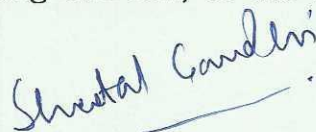 Sheetal Gandhi